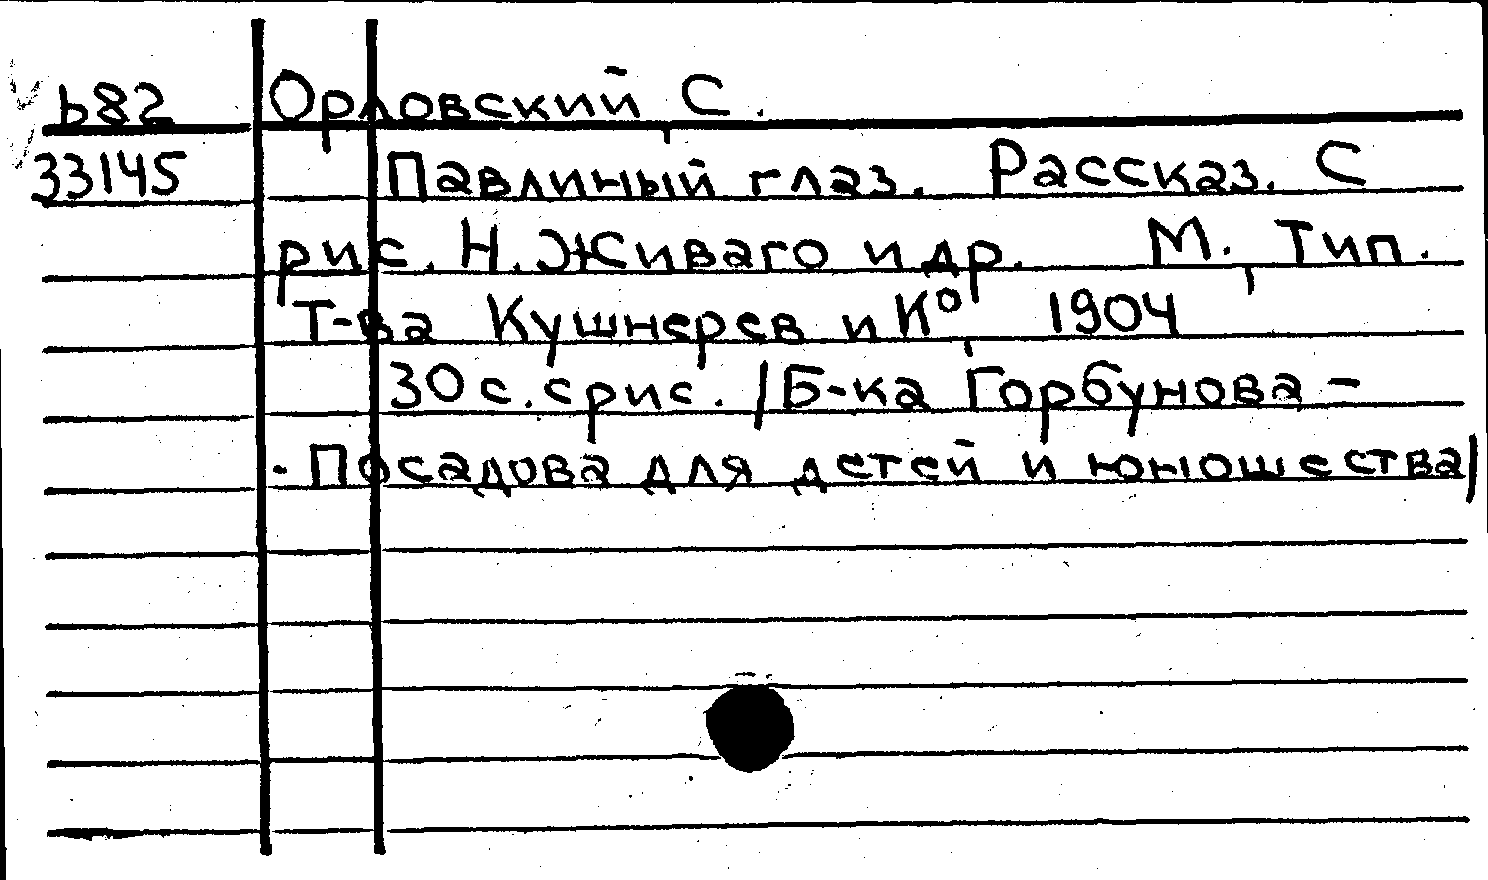 b82 Орловский С.
33145 Павлиный глаз. Рассказ. С
рис. Н. Живаго и др. М. Тип.
Т-ва Кушнерев и К°, 1904
30 с. с рис. /Б-ка Горбунова -
- Посадова для детей и юношества/